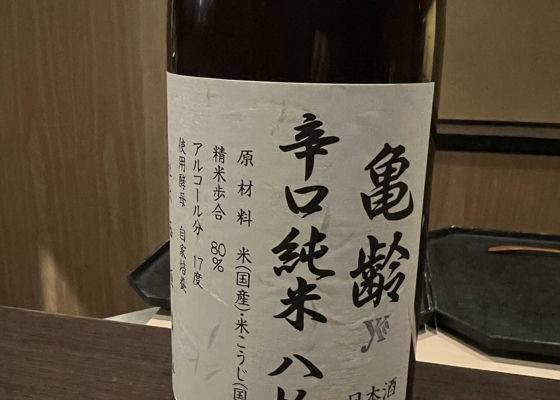 亀齢
辛口純米 八
日本酒
原材料 米(国産)・米こうじ(国
精米歩合 80%
アルコール分 17度
使用酵母 自家培養